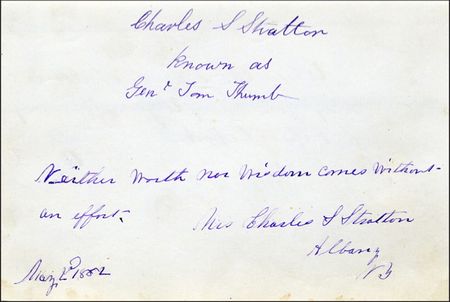 Charles S Stratton
known as
Genl Tom Thumb
Neither Worth nor Wisdom comes without
an effort.
Mrs Charles S Stratton
Albany
NY
May 2d 1882